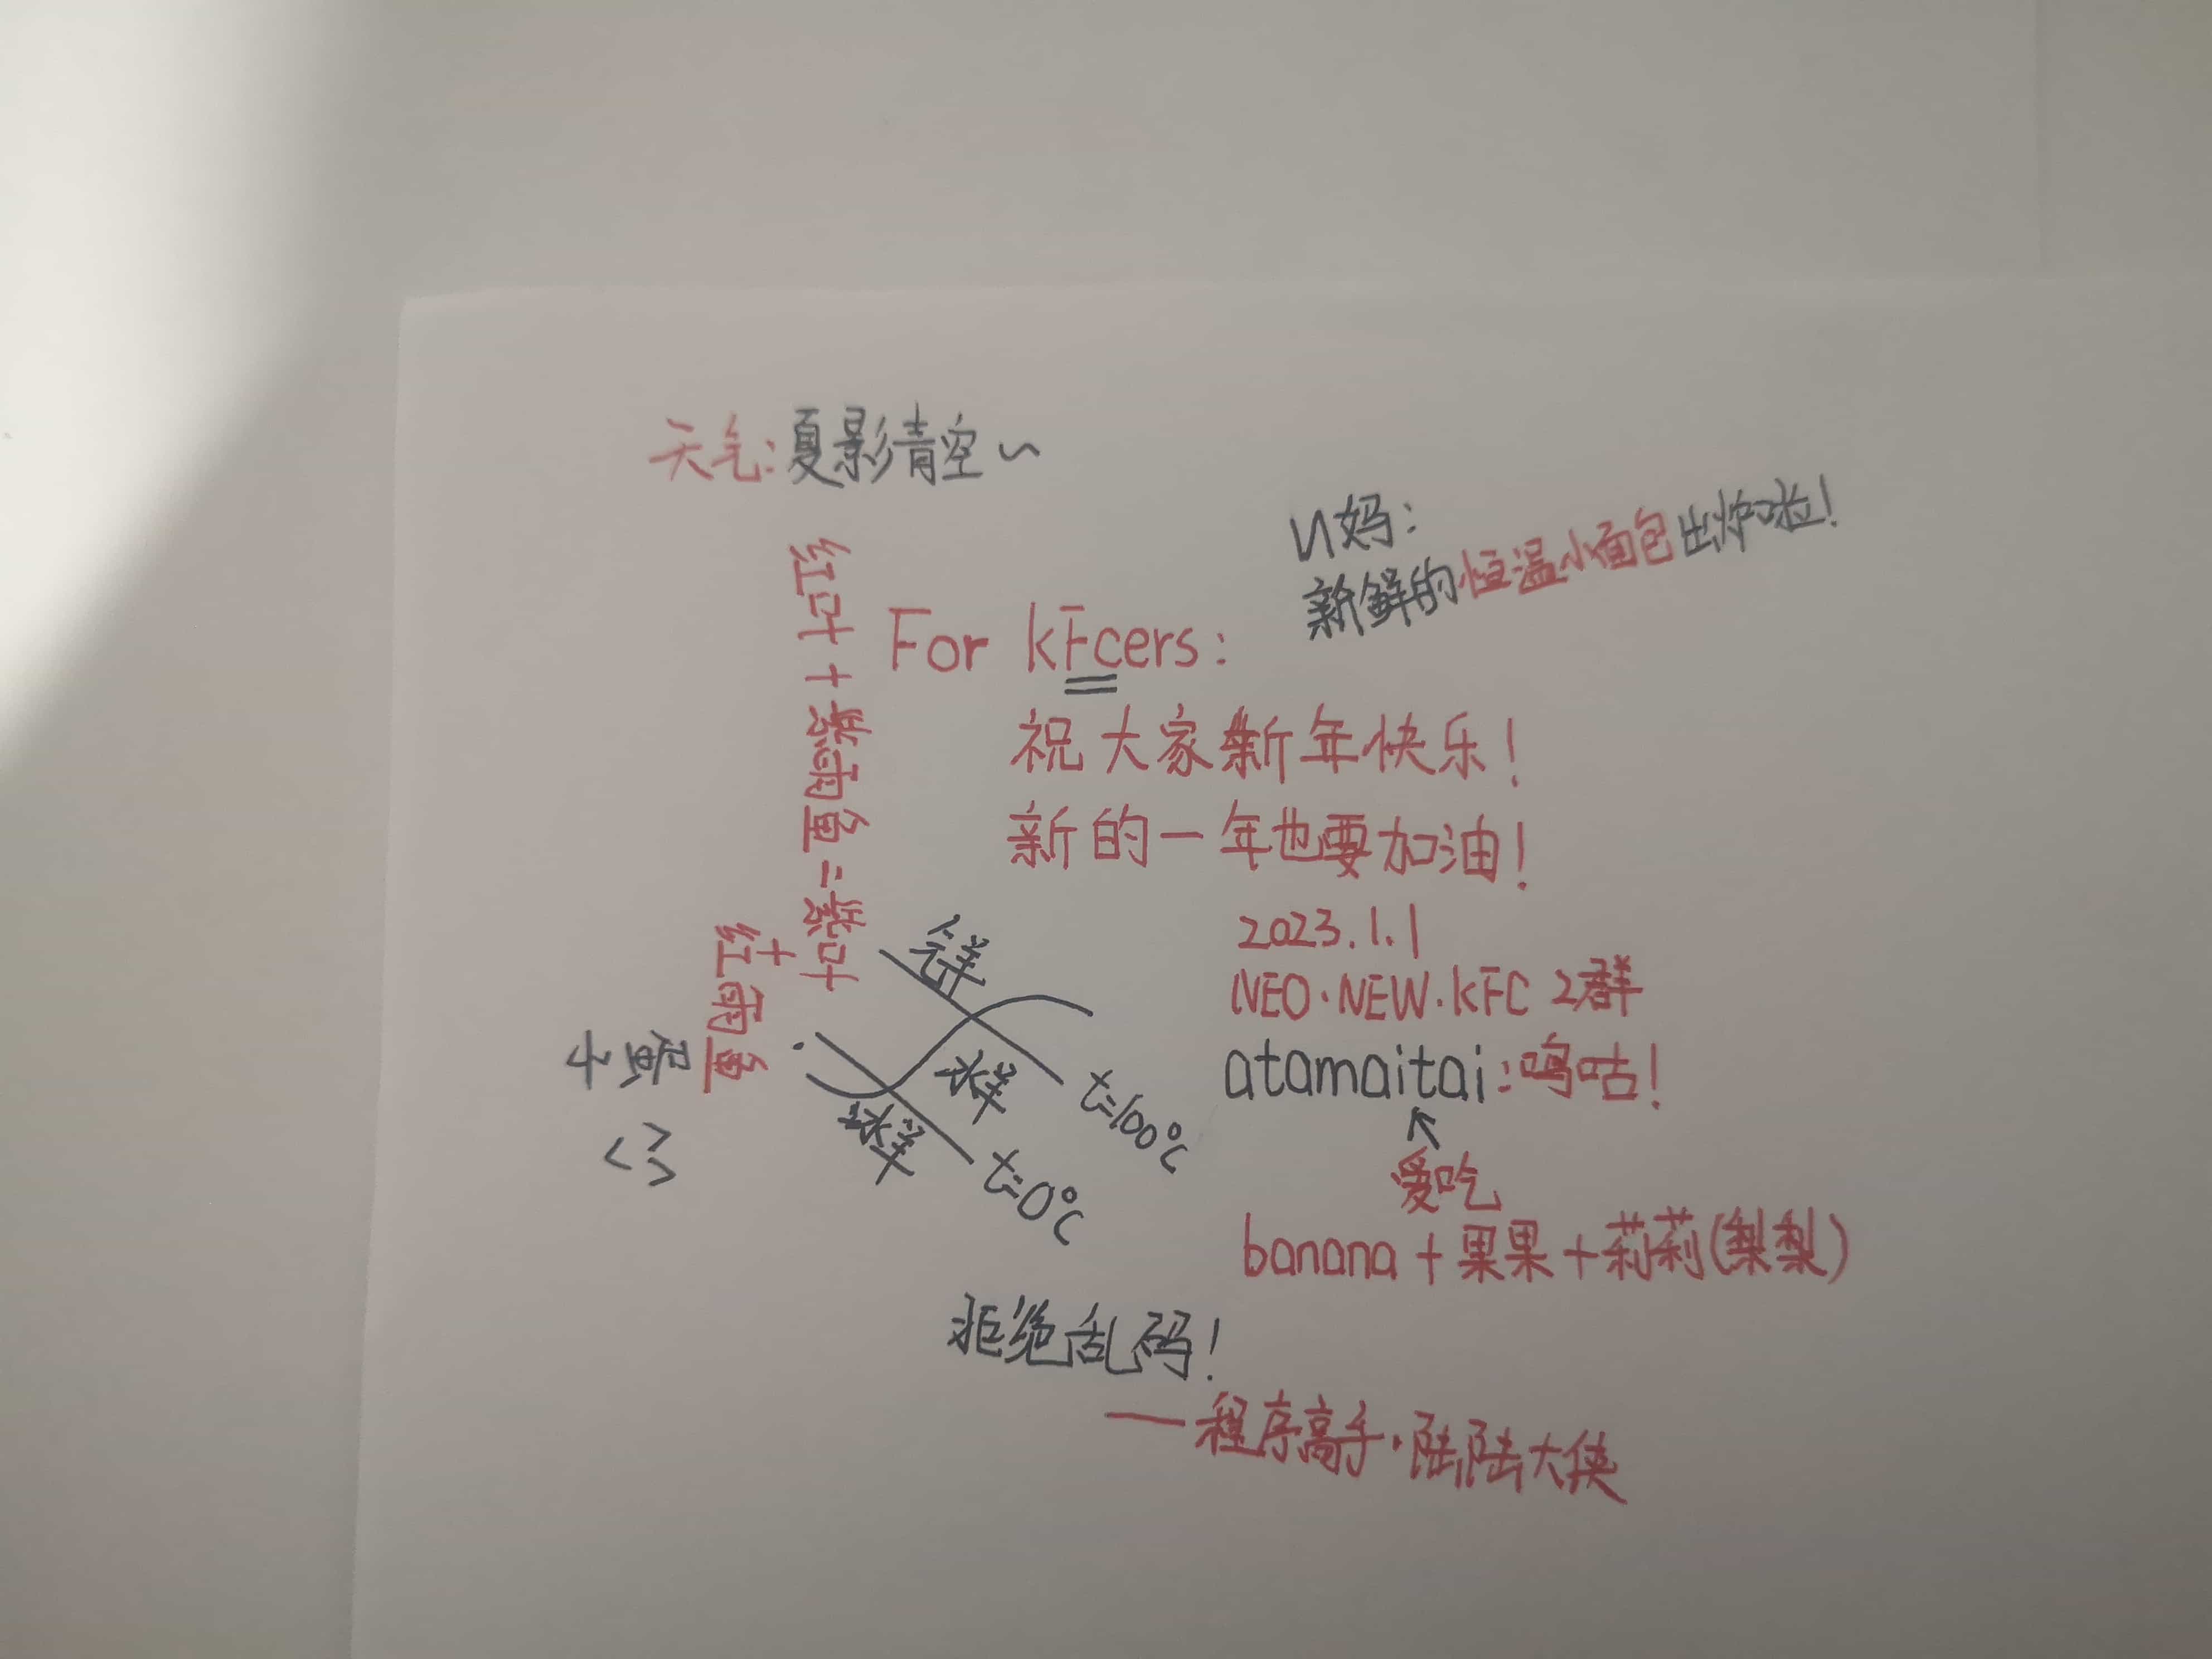 天气:夏影青空~
N妈:
新鲜的恒温小面包出炉啦!
红叶+紫雨鱼=紫叶
+
红雨鱼
For kFcers:
祝大家新年快乐!
新的一年也要加油!
2023.1.1
NEO·NEW·KFC 2群
atamaitai:呜咕!
爱吃
banana+果果+莉莉(梨梨)
水羊
t=100℃
t=0℃
<3
拒绝乱码!
——程序高手·陆陆大侠